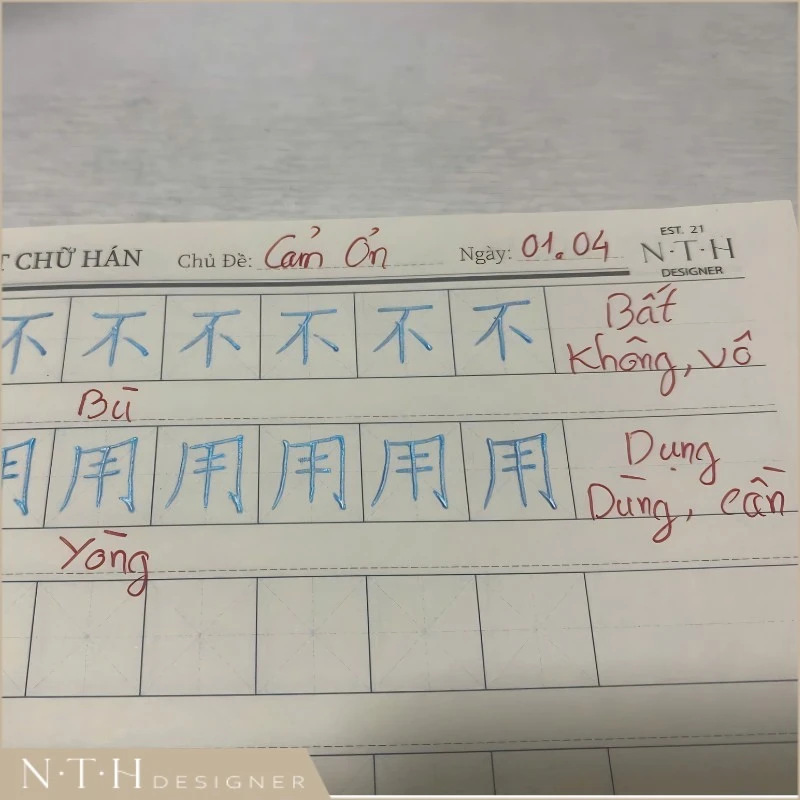 T CHỮ HÁN Chủ Đề: Cảm Ơn Ngày: 01.04 EST. 21 N·T·H DESIGNER
不 不 不 不 不 不 Bất
Không, vô
Bù
用 用 用 用 用 用 Dụng
Dùng, cần
Yòng
N·T·H DESIGNER